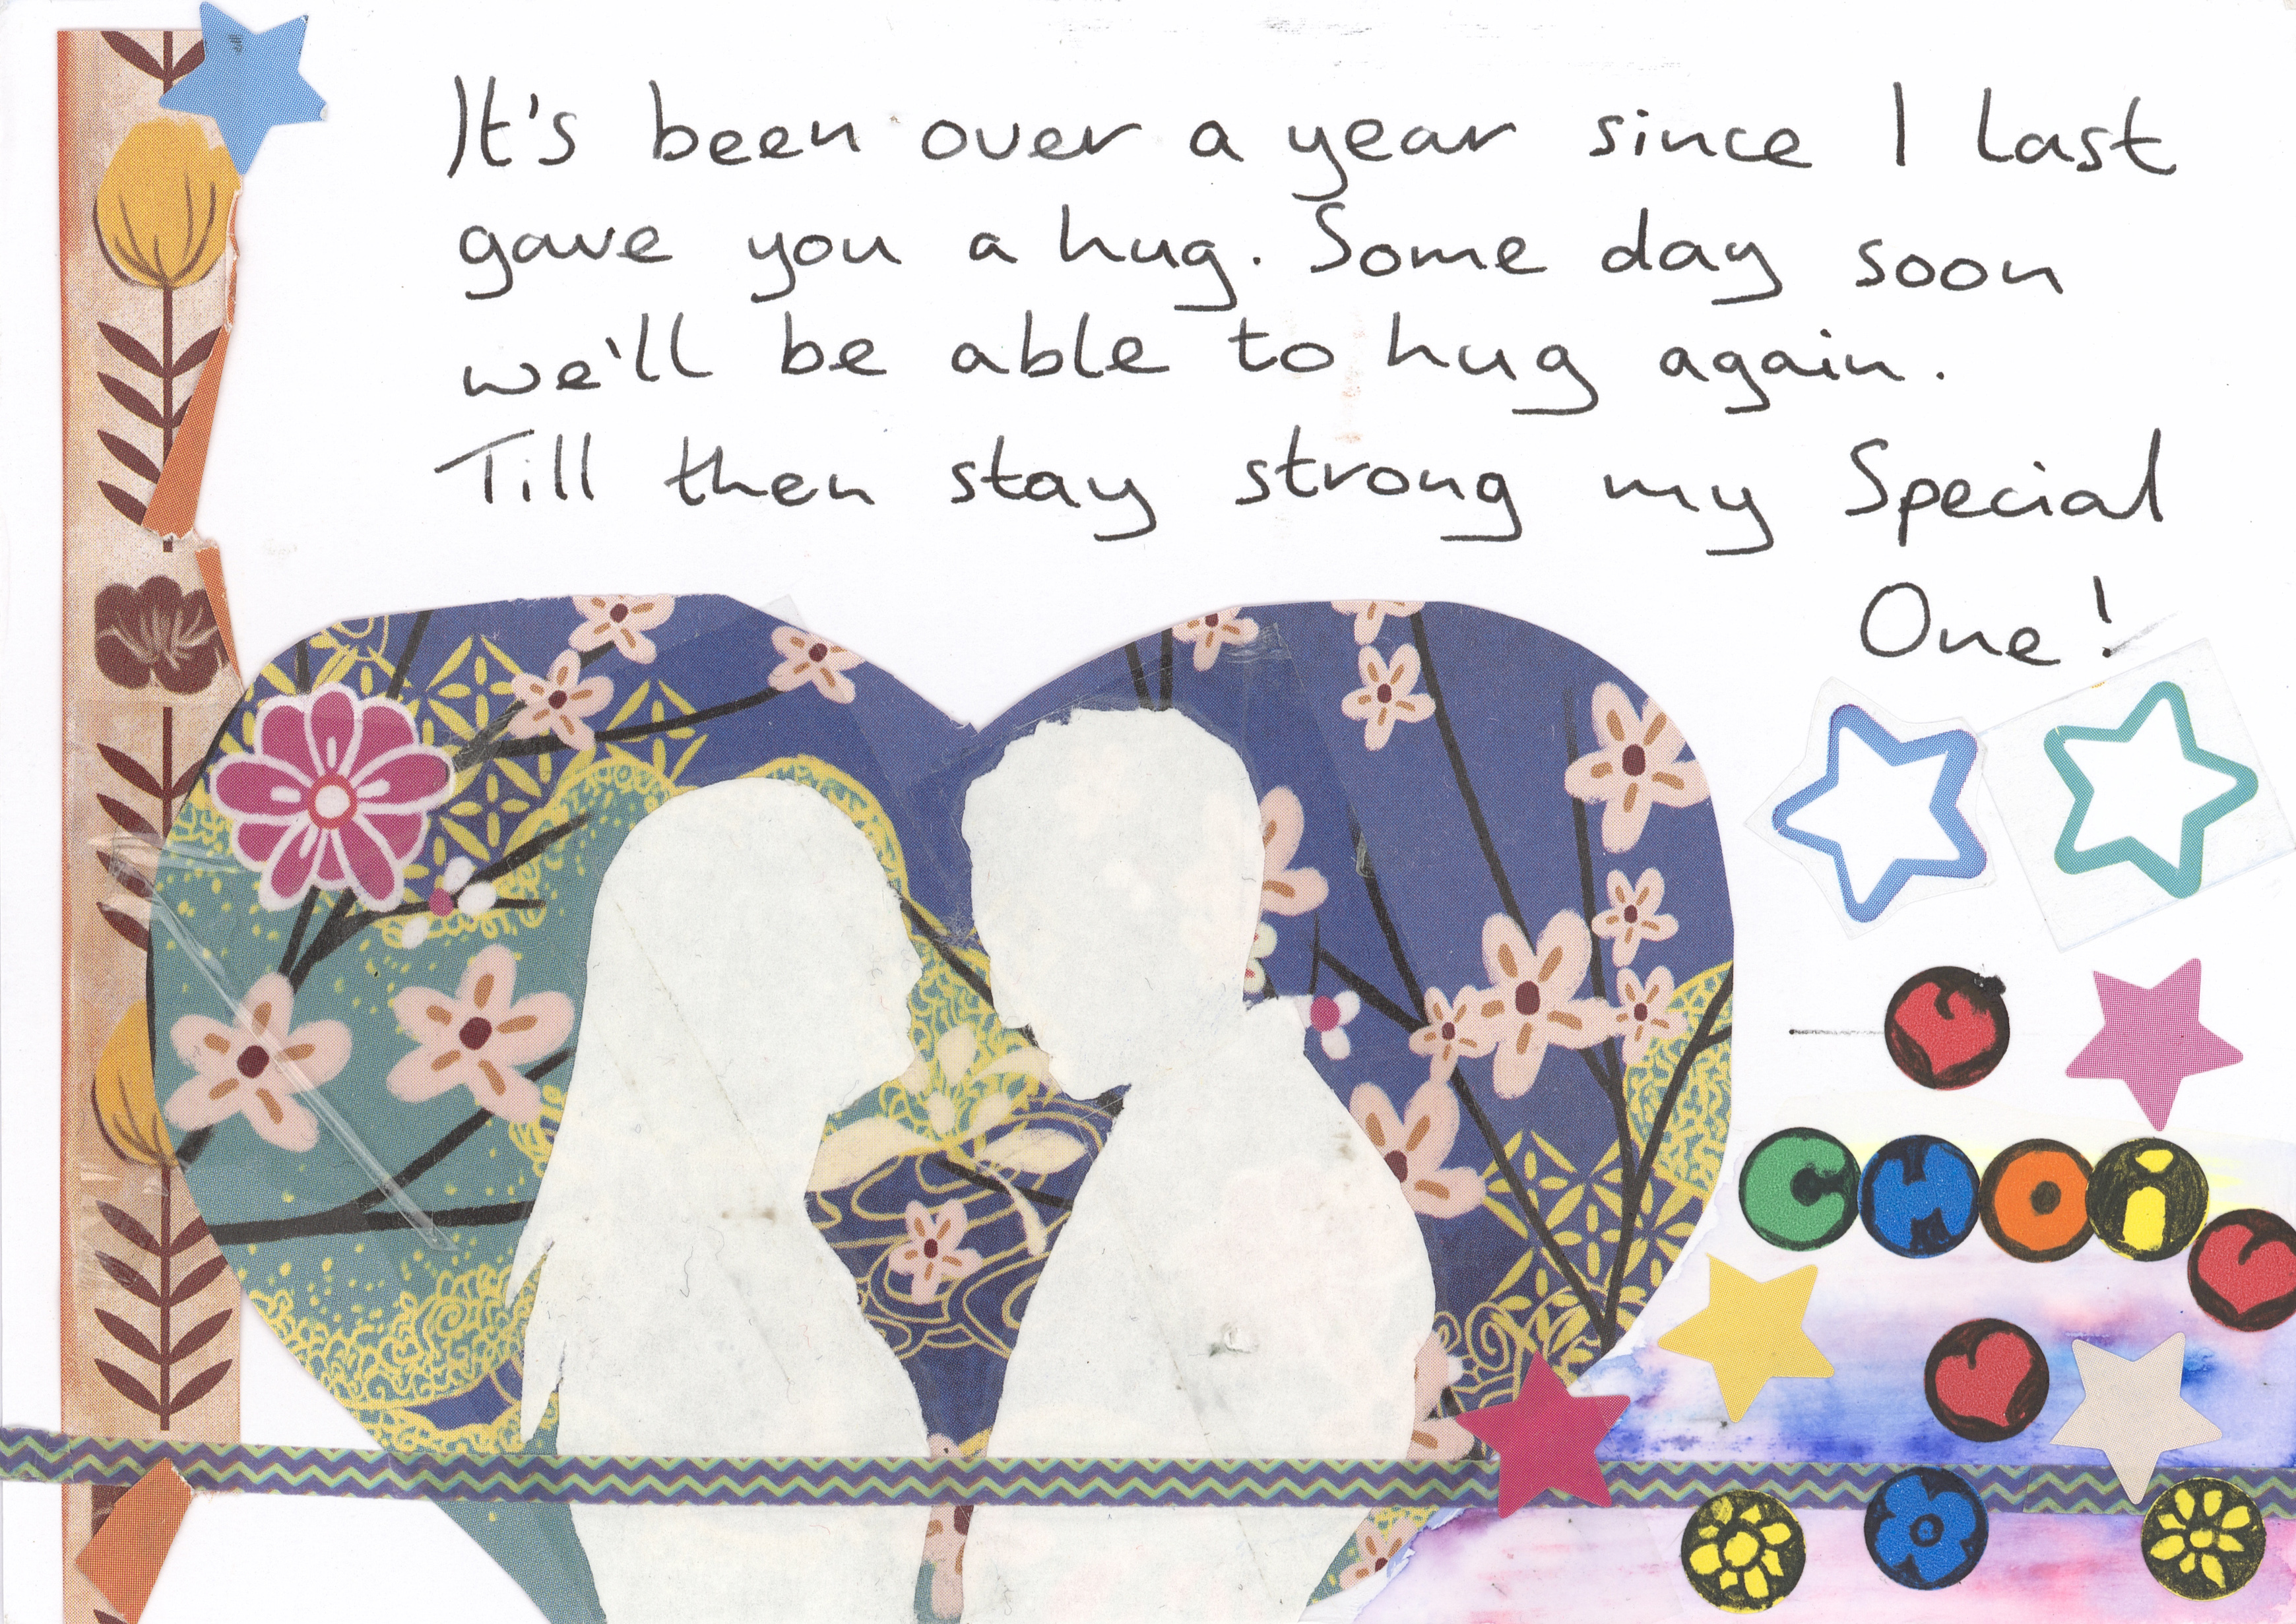 It's been over a year since I last
gave you a hug. Some day soon
we'll be able to hug again.
Till then stay strong my Special
One!
CHOi